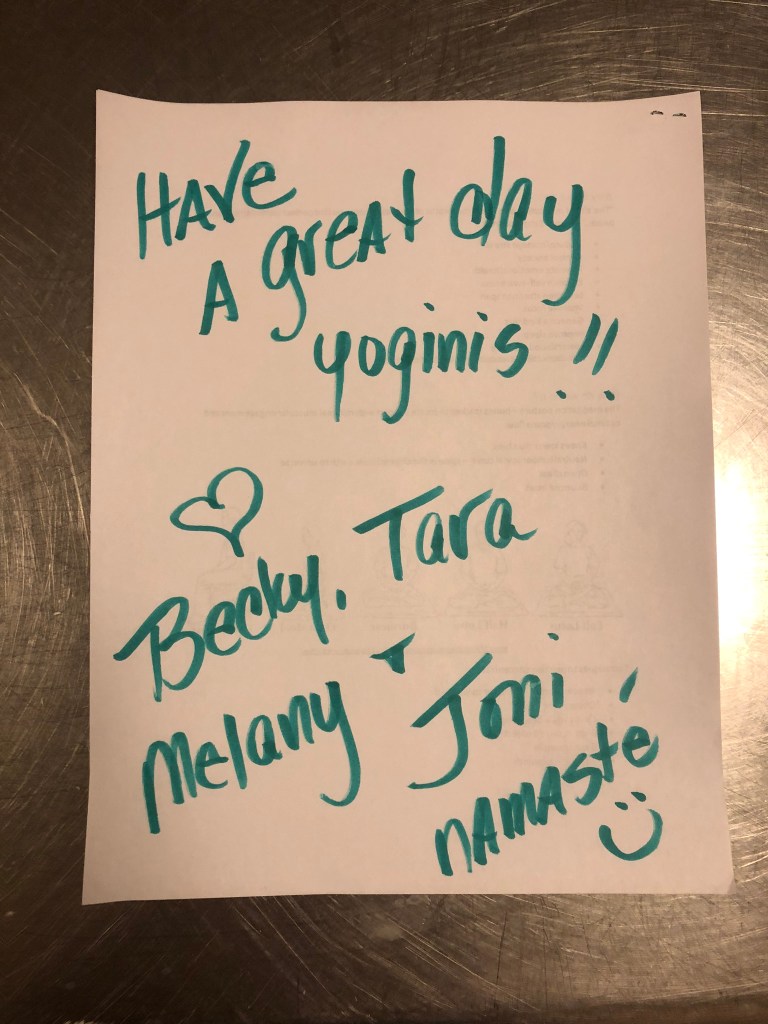 Have
A great day
yoginis !!
Becky, Tara
Melany + Joni
namasté